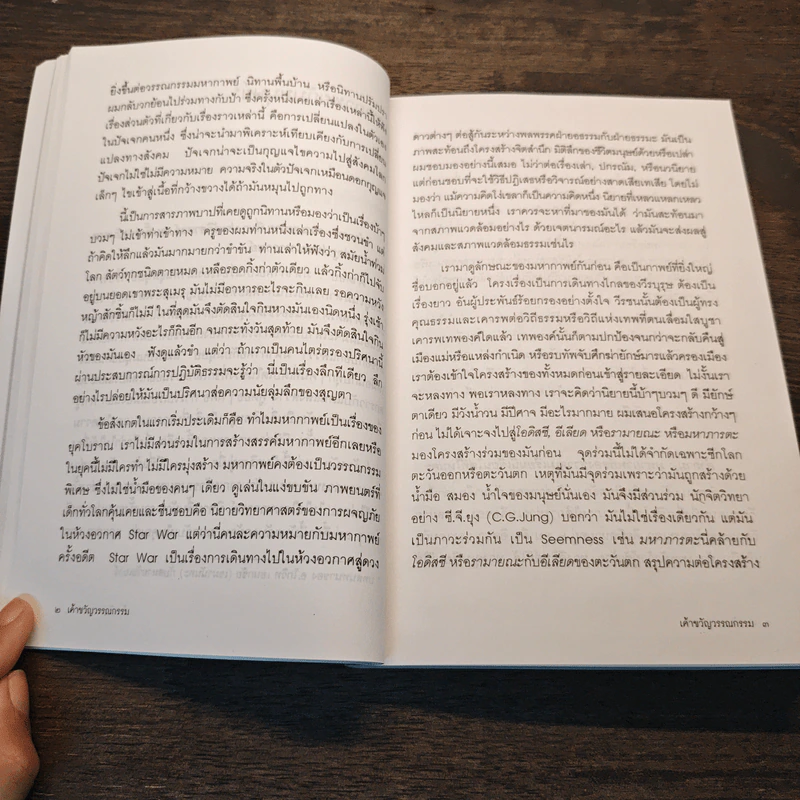 ยิ่งขึ้นต่อวรรณกรรมมหากาพย์ นิทานพื้นบ้าน หรือนิทานปรัมปรา
ผมกลับวกย้อนไปร่วมทางกับป้า ซึ่งครั้งหนึ่งเคยเล่าเรื่องเหล่านี้ให้ฟัง
เรื่องส่วนตัวที่เกี่ยวกับเรื่องราวเหล่านี้ คือการเปลี่ยนแปลงในตัวเอง
ในปัจเจกคนหนึ่ง ซึ่งน่าจะนำมาพิเคราะห์เทียบเคียงกับการเปลี่ยน
แปลงทางสังคม ปัจเจกน่าจะเป็นกุญแจไขความไปสู่สังคมโลก
ปัจเจกไม่ใช่ไม่มีความหมาย ความจริงในตัวปัจเจกเหมือนดอกกุญแจ
เล็กๆ ไขเข้าสู่เนื้อที่กว้างขวางได้ถ้ามันหมุนไปถูกทาง
นี้เป็นการสารภาพบาปที่เคยดูถูกนิทานหรือมองว่าเป็นเรื่องบ้าๆ
บวมๆ ไม่เข้าท่าเข้าทาง ครูของผมท่านหนึ่งเล่าเรื่องซึ่งชวนขำ แต่
ถ้าคิดให้ลึกแล้วมันมากมายกว่าขำขัน ท่านเล่าให้ฟังว่า สมัยน้ำท่วม
โลก สัตว์ทุกชนิดตายหมด เหลือรอดกิ้งก่าตัวเดียว แล้วกิ้งก่าก็ไปจับ
อยู่บนยอดเขาพระสุเมรุ มันไม่มีอาหารอะไรจะกินเลย รอความหวัง
หญ้าสักชิ้นก็ไม่มี ในที่สุดมันจึงตัดสินใจกินหางมันเองนิดหนึ่ง รุ่งเช้า
ก็ไม่มีความหวังอะไรก็กินอีก จนกระทั่งวันสุดท้าย มันจึงตัดสินใจกิน
หัวของมันเอง ฟังดูแล้วขำ แต่ว่า ถ้าเราเป็นคนไตร่ตรองปริศนานี้
ผ่านประสบการณ์การปฏิบัติธรรมจะรู้ว่า นี่เป็นเรื่องลึกทีเดียว ลึก
อย่างไรปล่อยให้มันเป็นปริศนาส่อความนัยลุ่มลึกของสุญตา
ข้อสังเกตในแรกเริ่มประเดิมก็คือ ทำไมมหากาพย์เป็นเรื่องของ
ยุคโบราณ เราไม่มีส่วนร่วมในการสร้างสรรค์มหากาพย์อีกเลยหรือ
ในยุคนี้ไม่มีใครทำ ไม่มีใครมุ่งสร้าง มหากาพย์คงต้องเป็นวรรณกรรม
พิเศษ ซึ่งไม่ใช่น้ำมือของคนๆ เดียว ดูเล่นในแง่ขบขัน ภาพยนตร์ที่
เด็กทั่วโลกคุ้นเคยและชื่นชอบคือ นิยายวิทยาศาสตร์ของการผจญภัย
ในห้วงอวกาศ Star War แต่ว่านี่คนละความหมายกับมหากาพย์
ครั้งอดีต Star War เป็นเรื่องการเดินทางไปในห้วงอวกาศสู่ดวง
๒ เค้าขวัญวรรณกรรม
ดาวต่างๆ ต่อสู้กันระหว่างพลพรรคฝ่ายอธรรมกับฝ่ายธรรมะ มันเป็น
ภาพสะท้อนถึงโครงสร้างจิตสำนึก มิติลึกของชีวิตมนุษย์ด้วยหรือเปล่า
ผมชอบมองอย่างนี้เสมอ ไม่ว่าต่อเรื่องเล่า, ปกรณัม, หรือนวนิยาย
แต่ก่อนชอบที่จะใช้วิธีปฏิเสธหรือวิจารณ์อย่างสาดเสียเทเสีย โดยไม่
มองว่า แม้ความคิดโง่เขลาก็เป็นความคิดหนึ่ง นิยายที่เหลวแหลกเหลว
ไหลก็เป็นนิยายหนึ่ง เราควรจะหาที่มาของมันได้ ว่ามันสะท้อนมา
จากสภาพแวดล้อมอย่างไร ด้วยเจตนารมณ์อะไร แล้วมันจะส่งผลสู่
สังคมและสภาพแวดล้อมธรรมเช่นไร
เรามาดูลักษณะของมหากาพย์กันก่อน คือเป็นกาพย์ที่ยิ่งใหญ่
ชื่อบอกอยู่แล้ว โครงเรื่องเป็นการเดินทางไกลของวีรบุรุษ ต้องเป็น
เรื่องยาว อันผู้ประพันธ์ร้อยกรองอย่างตั้งใจ วีรชนนั้นต้องเป็นผู้ทรง
คุณธรรมและเคารพต่อวิถีธรรมหรือวิถีแห่งเทพที่ตนเลื่อมใสบูชา
เคารพเทพองค์ใดแล้ว เทพองค์นั้นก็ตามปกป้องจนกว่าจะกลับคืนสู่
เมืองแม่หรือแหล่งกำเนิด หรือรบทัพจับศึกฆ่ายักษ์มารแล้วครองเมือง
เราต้องเข้าใจโครงสร้างของทั้งหมดก่อนเข้าสู่รายละเอียด ไม่งั้นเรา
จะหลงทาง พอเราหลงทาง เราจะคิดว่านิยายนี้บ้าๆบวมๆ ดี มียักษ์
ตาเดียว มีวังน้ำวน มีปีศาจ มีอะไรมากมาย ผมเสนอโครงสร้างกว้างๆ
ก่อน ไม่ได้เจาะจงไปสู่โอดิสซี, อีเลียด หรือรามายณะ หรือมหาภารตะ
มองโครงสร้างร่วมของมันก่อน จุดร่วมนี้ไม่ได้จำกัดเฉพาะซีกโลก
ตะวันออกหรือตะวันตก เหตุที่มันมีจุดร่วมเพราะว่ามันถูกสร้างด้วย
น้ำมือ สมอง น้ำใจของมนุษย์นั่นเอง มันจึงมีส่วนร่วม นักจิตวิทยา
อย่าง ซี.จี.ยุง (C.G.Jung) บอกว่า มันไม่ใช่เรื่องเดียวกัน แต่มัน
เป็นภาวะร่วมกัน เป็น Seemness เช่น มหาภารตะนี่คล้ายกับ
โอดิสซี หรือรามายณะกับอีเลียดของตะวันตก สรุปความต่อโครงสร้าง
เค้าขวัญวรรณกรรม ๓